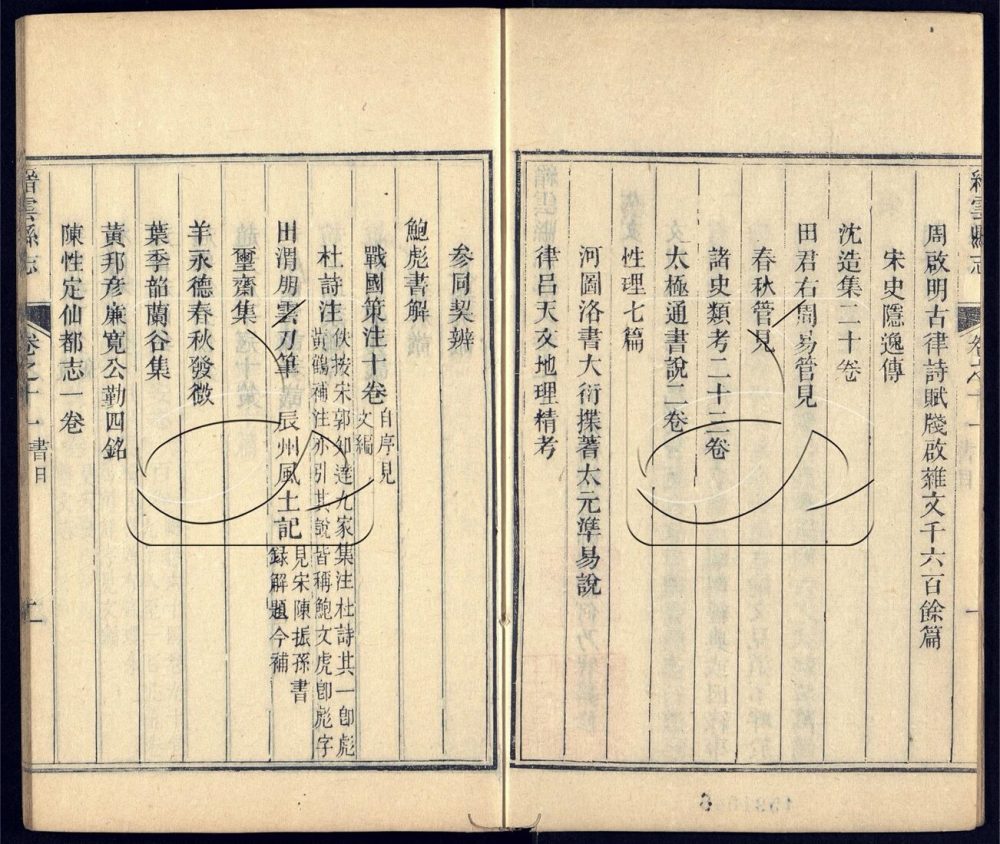 縉雲縣志
周啟明古律詩賦牋啟雜文千六百餘篇
宋史隱逸傳
沈造集二十卷
田君右周易管見
春秋管見
諸史類考二十三卷
太極通書說二卷
性理七篇
河圖洛書大衍揲蓍太元準易說
律呂天文地理精考
參同契辨
鮑彪書解
戰國策注十卷
自序見
文編
杜詩注
佚按宋郭知達九家集注杜詩其一即彪
黃鶴補注亦引其說皆稱鮑文虎即彪字
田渭朋雲刀筆 辰州風土記
見宋陳振孫書
錄解題今補
璽齋集
羊永德春秋發微
葉季韶蘭谷集
黃邦彥廉寬公勤四銘
陳性定仙都志一卷
縉雲縣志
卷之十一
書目